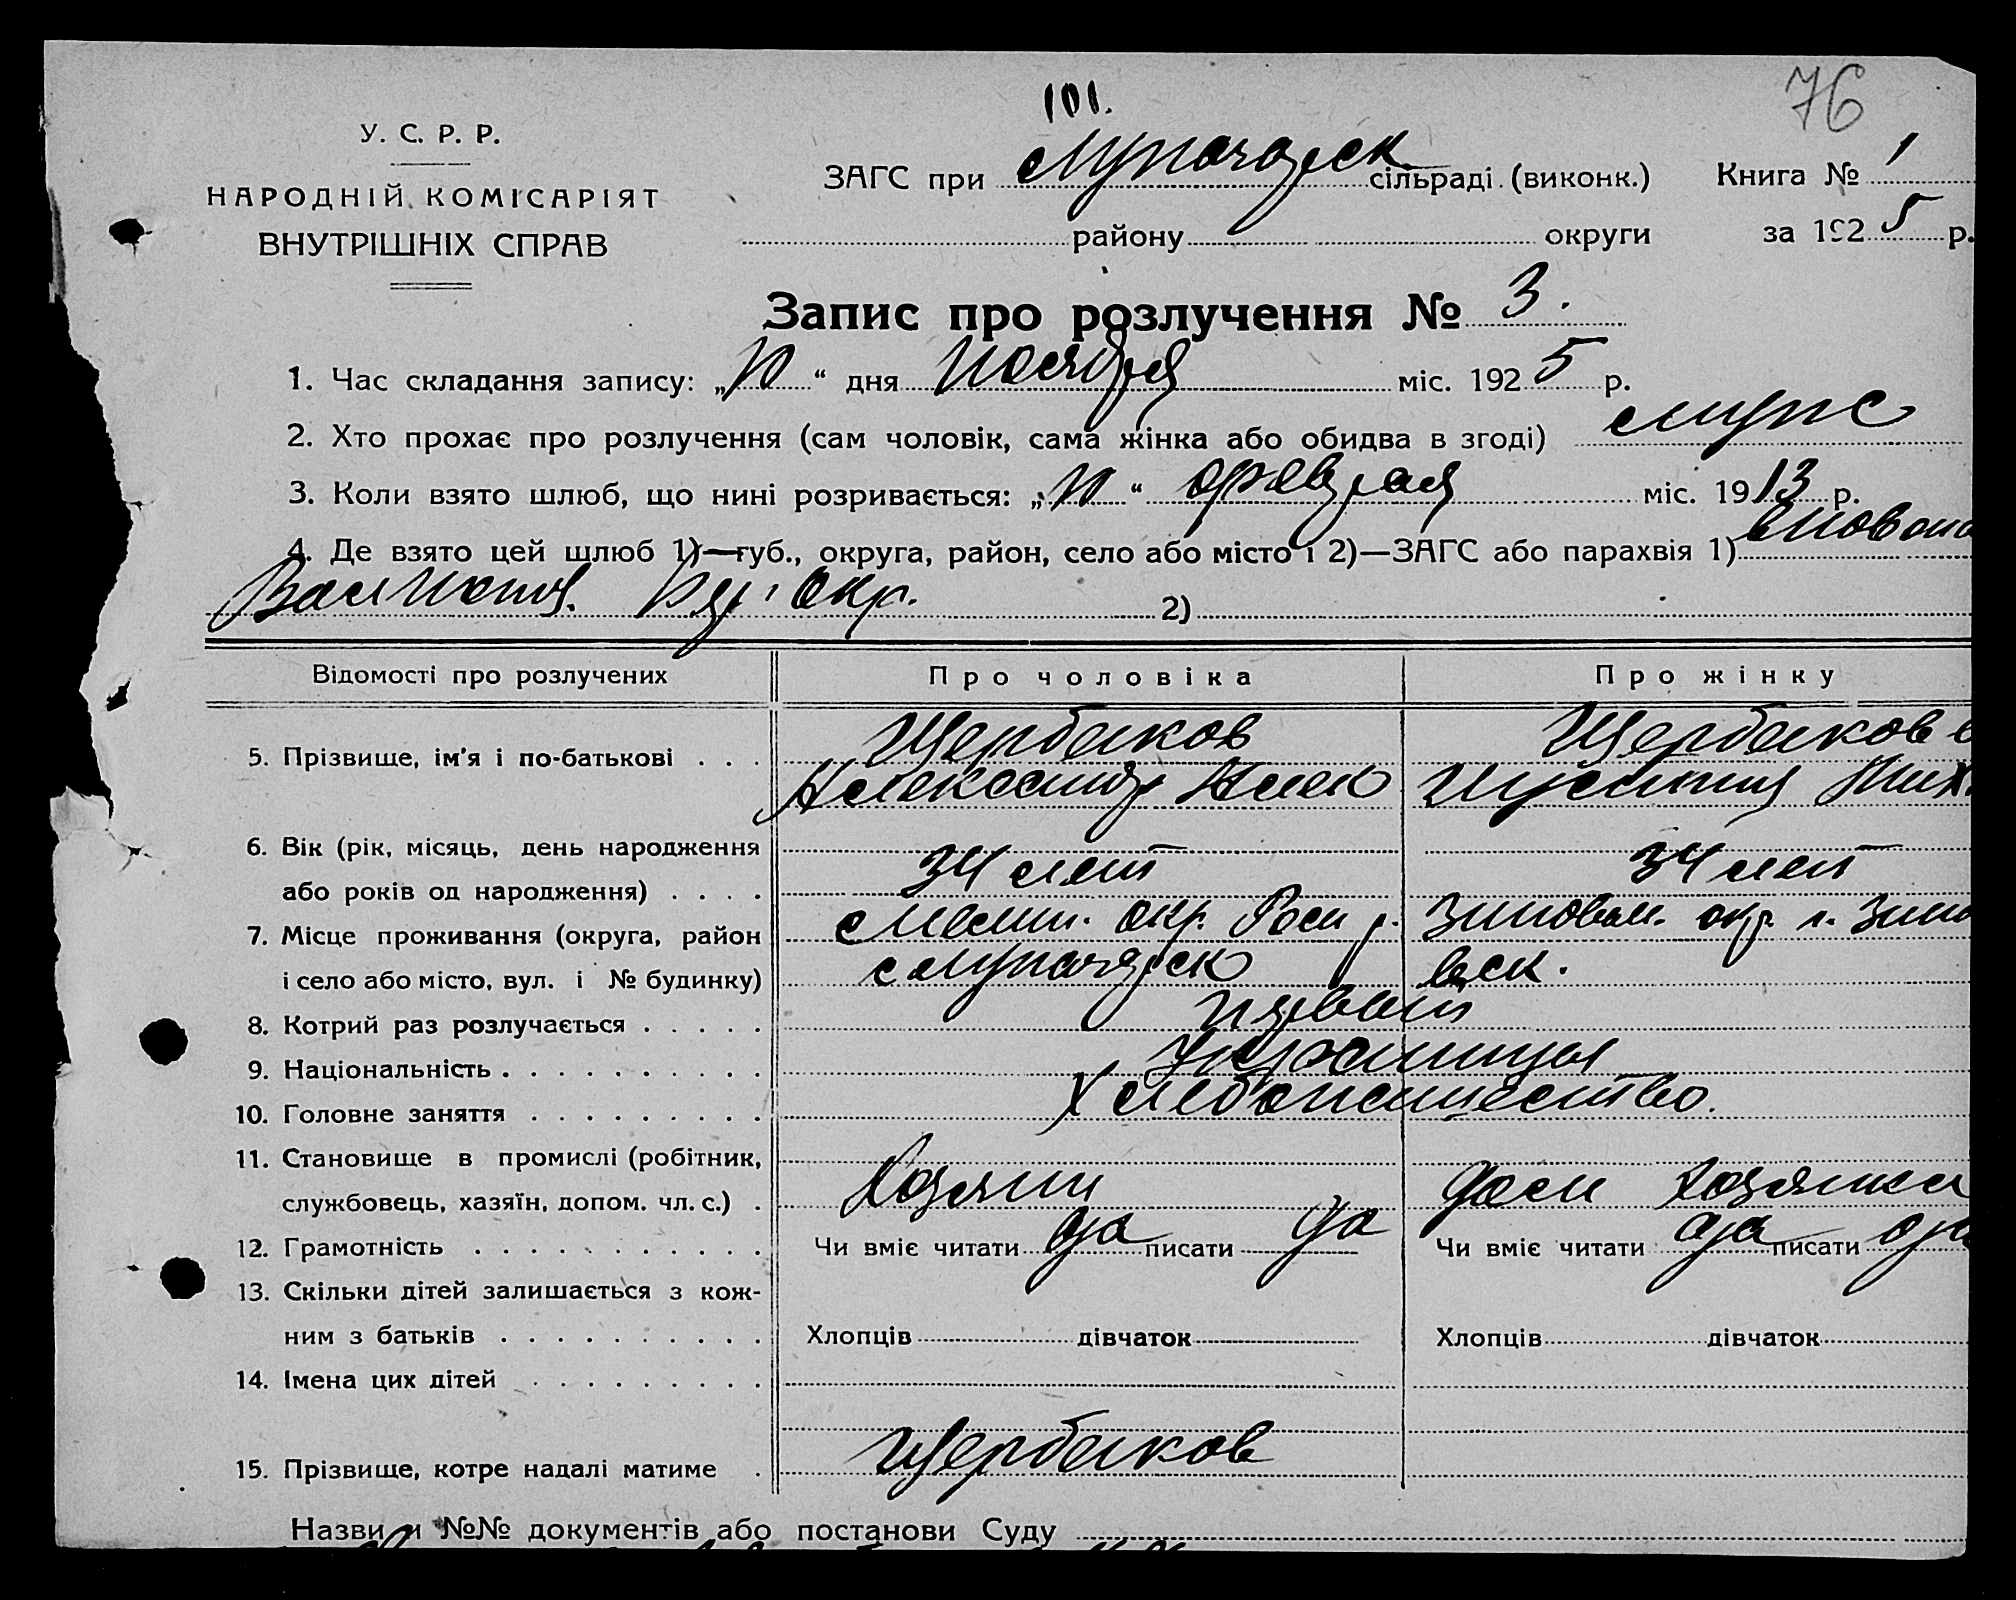 101.
76
У. С. Р. Р.
НАРОДНІЙ КОМІСАРІЯТ
ВНУТРІШНІХ СПРАВ
ЗАГС при сільраді (виконк.) Книга № 1
району округи за 1925 р.
Запис про розлучення № 3.
1. Час складання запису: „ “ дня Ноября міс. 1925 р.
2. Хто прохає про розлучення (сам чоловік, сама жінка або обидва в згоді)
3. Коли взято шлюб, що нині розривається: „ “ февраля міс. 1913 р.
4. Де взято цей шлюб 1)—губ., округа, район, село або місто і 2)—ЗАГС або парахвія 1)
окр. 2)
Відомості про розлучених Про чоловіка Про жінку
5. Прізвище, ім'я і по-батькові . . . Щербаков Щербакова
Александр Алек Мих.
6. Вік (рік, місяць, день народження
або років од народження) . . . . 34 лет 34 лет
7. Місце проживання (округа, район окр. р. Зиновьев. окр. г. Зино
і село або місто, вул. і № будинку) вск.
8. Котрий раз розлучається . . . . . первый
9. Національність . . . . . . . . . . Украинцы
10. Головне заняття . . . . . . . . . Хлебопашество.
11. Становище в промислі (робітник,
службовець, хазяїн, допом. чл. с.) . Хозяин дом хозяйка
12. Грамотність . . . . . . . . . . . Чи вміє читати да писати да Чи вміє читати да писати да
13. Скільки дітей залишається з кож-
ним з батьків . . . . . . . . . . Хлопців дівчаток Хлопців дівчаток
14. Імена цих дітей . . . . . . . . .
15. Прізвище, котре надалі матиме . Щербаков
Назви и №№ документів або постанови Суду